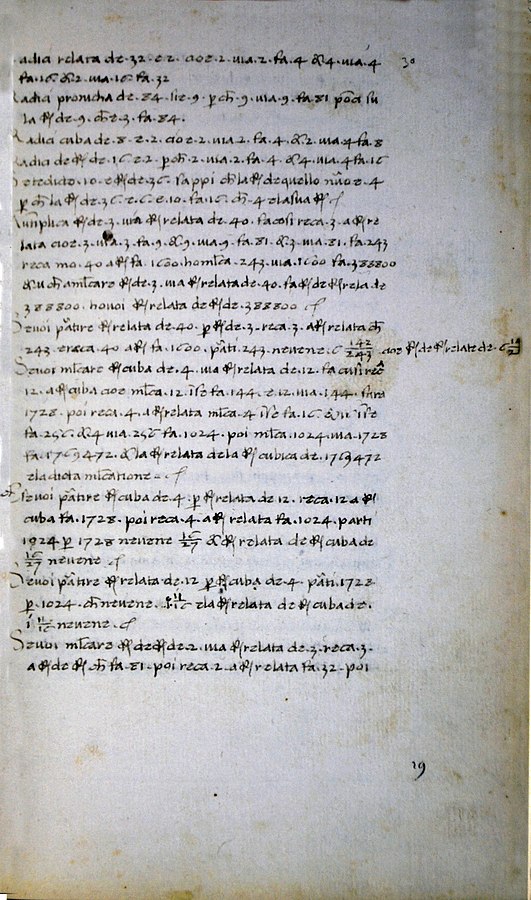 adici relata de · 32 · e · 2 · cioe · 2 · via · 2 · fa · 4 · & 4 · via · 4 30
fa · 16 & 2 · via · 16 · fa · 32
Radici pronicha de · 84 · sie · 9 · p ch̄ · 9 · via · 9 · fa · 81 su
la R de · 9 · ch̄ e · 3 · fa · 84 ·
Radici cuba de · 8 · e · 2 · cioe · 2 · via · 2 · fa · 4 · & 2 · via · 4 · fa · 8
Radici de R de · 16 · e · 2 · p ch̄ · 2 · via · 2 · fa · 4 · & 4 · via · 4 · fa · 16
Se te dicto · 10 · e R de · 36 · sappi ch̄ la R de quello nāo e · 4
p ch̄ la R de · 36 · e · 6 · e · 10 · fa · 16 · ch̄ · 4 e la sua R
R de · 3 · via R relata de · 40 · fa cosi reca · 3 · a R re
lata cioe · 3 · via · 3 · fa · 9 · & 9 · via · 9 · fa · 81 · & 3 · via · 81 · fa · 243
reca mo · 40 a R fa · 1600 · hor ml̄ca · 243 · via · 1600 fa · 388800
ml̄care R de · 3 · via R relata de · 40 · fa R de R rela de
388800 · R relata de R de · 388800
Se voi pātire R relata de · 40 · p R de · 3 · reca · 3 · a R relata ch̄
243 · e reca · 40 a R fa · 1600 · pāti · 243 · ne vene · 6 142/243 · cioe R de R relate de · 6
Se voi ml̄care R cuba de · 4 · via R relata de · 12 · fa cusi reca
12 · a R cuba cioe ml̄ca · 12 · ī se fa · 144 · e · 12 · via · 144 · fara
1728 · poi reca · 4 · a R relata ml̄ca · 4 ī se fa · 16 · & 16 ī se
fa · 256 · & 4 via · 256 fa · 1024 · poi ml̄ca · 1024 · via · 1728
fa · 1769472 · & la R relata de la R cubica de · 1769472
e la dicta ml̄catione ·
Se voi pātire R cuba de · 4 · p R relata de · 12 · reca · 12 a R
cuba fa · 1728 · poi reca · 4 · a R relata fa · 1024 · parti
1024 p 1728 ne vene 16/27 & R relata de R cuba de
16/27 ne vene
Se voi pātire R relata de · 12 p R cuba de · 4 · pāti · 1728
p · 1024 · ch̄ ne vene · 1 11/16 e la R relata de R cuba de ·
1 11/16 ne vene ·
Se voi ml̄care R de R de · 2 · via R relata de · 3 · reca · 3 ·
a R de R ch̄ fa · 81 · poi reca · 2 · a R relata fa · 32 · poi
19